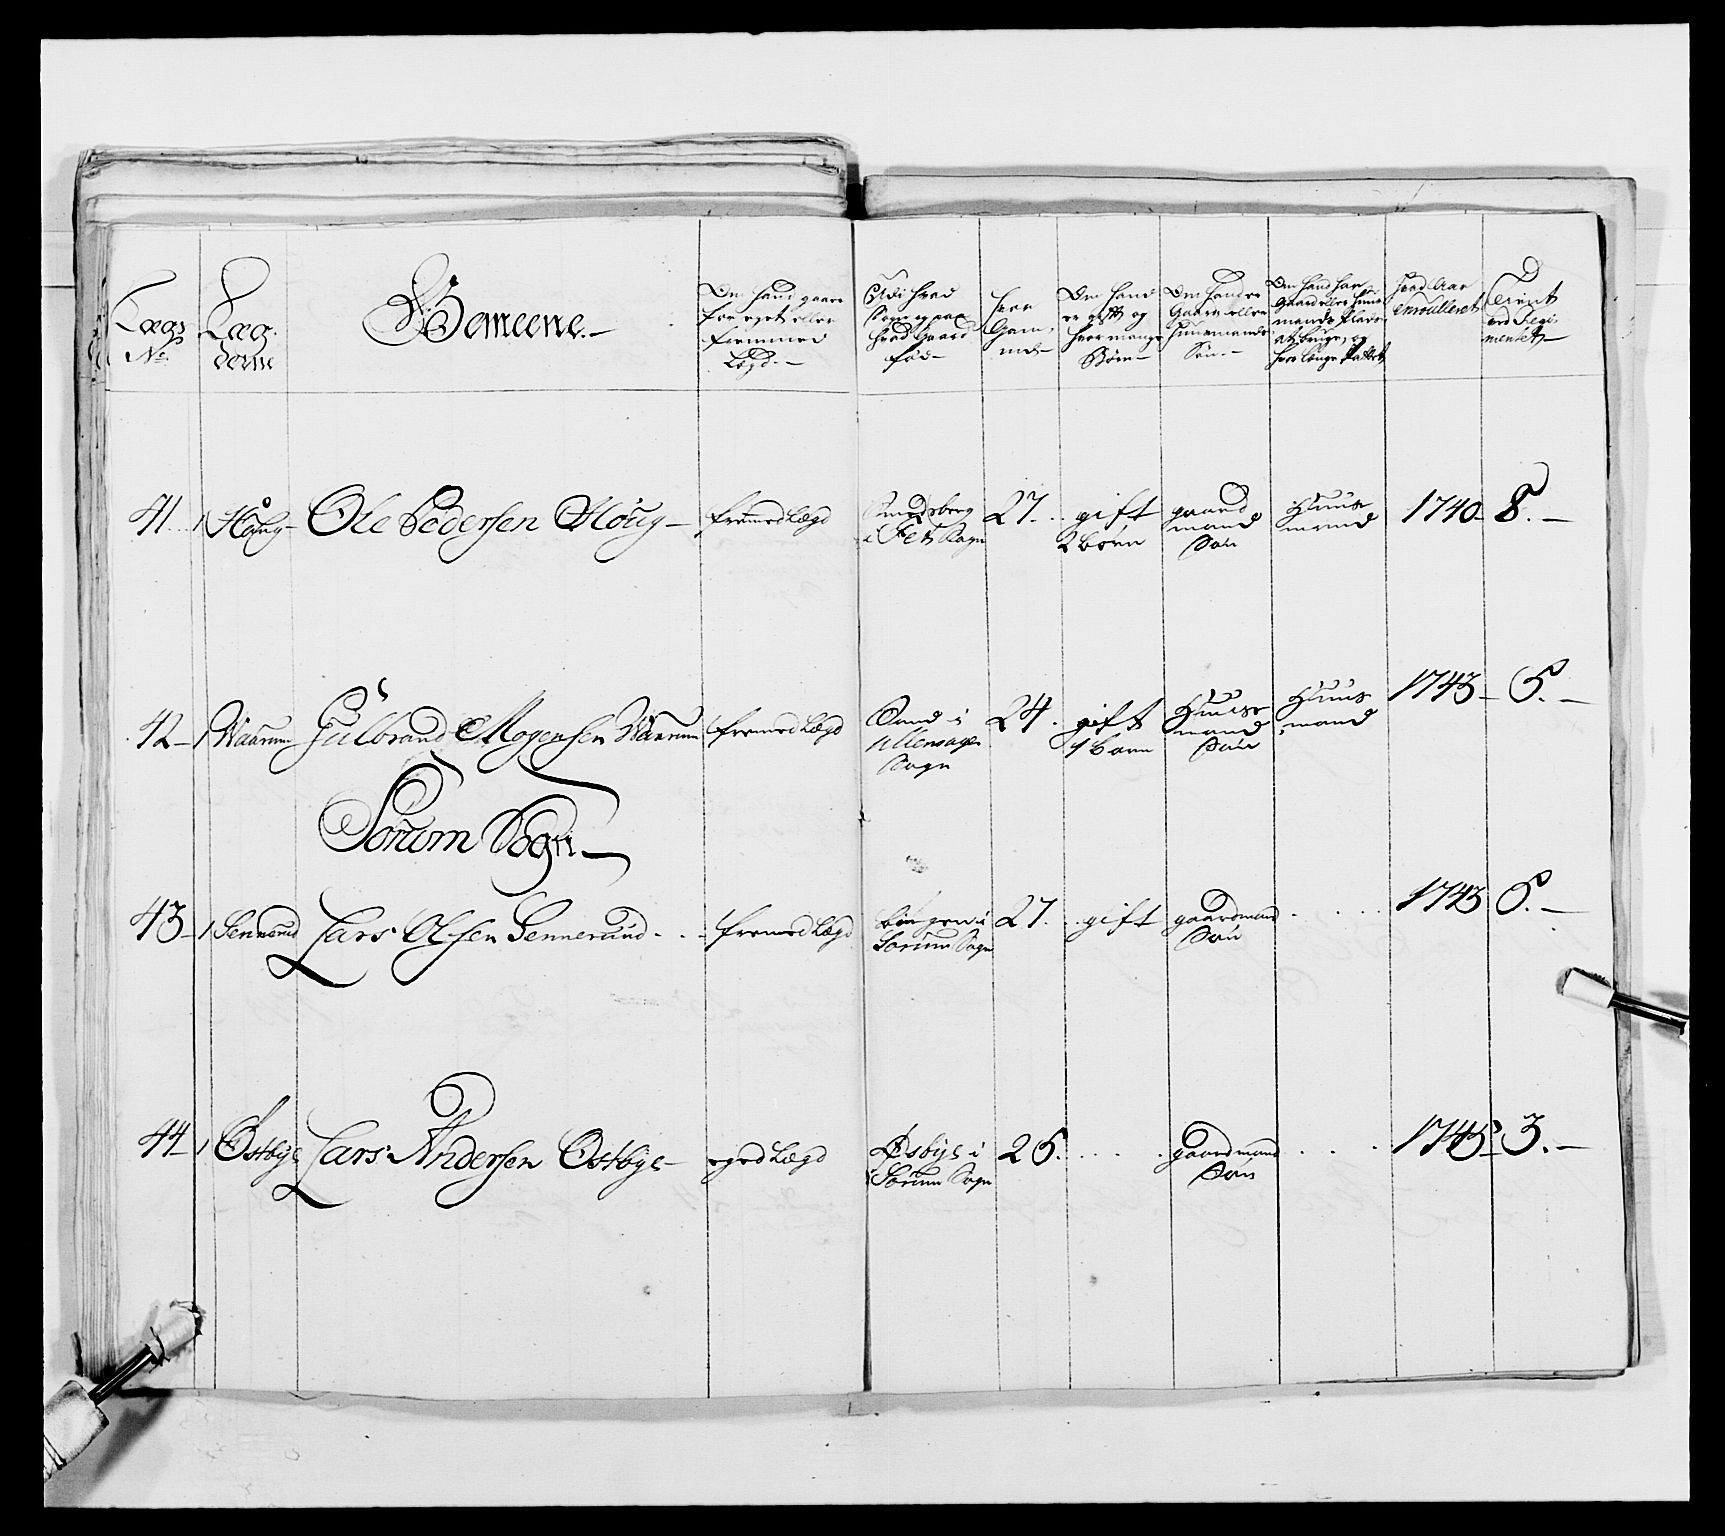 Lægs
No
Læg-
derne
Gemeene.—
Om hand gaaer
for eget eller
fremmed
Lægd.—
Udi hvad
Sogn og paa
hvad Gaard
fød—
hvor
Gam-
mel—
Om hand
er gift og
hvor mange
Børn—
Om hand er
Gaard eller
huusmands
Søn.—
Om hand har
Gaard eller huus-
mands Plads
at bruge, og
hvad Aar
enroulleret
Tient
ved Regi-
mentet—
41. 1 Houg— Ole Pedersen Houg— fremed Lægd
i Fet Sogn
27.
gift
2 børn
gaard
mand
Søn
Huus
mand
1740— 8.—
42— 1 Waarum Gulbrand Mogensen Waarum fremed Lægd
Sand i
Ullensager
Sogn
24.
gift
1 barn
Huuse
mand
Søn
Huus
mand
1743— 5.—
Sørum Sogn—
43— 1 Sennerud Lars Olsen Sennerud fremed Lægd
i
Sørum Sogn
27.
gift
gaardmand
Søn
1743 5.—
44— 1 Østbye Lars Andersen Østbye— eged Lægd
Østbye i
Sørum Sogn
25.
gaardmand
Søn
1745— 3.—